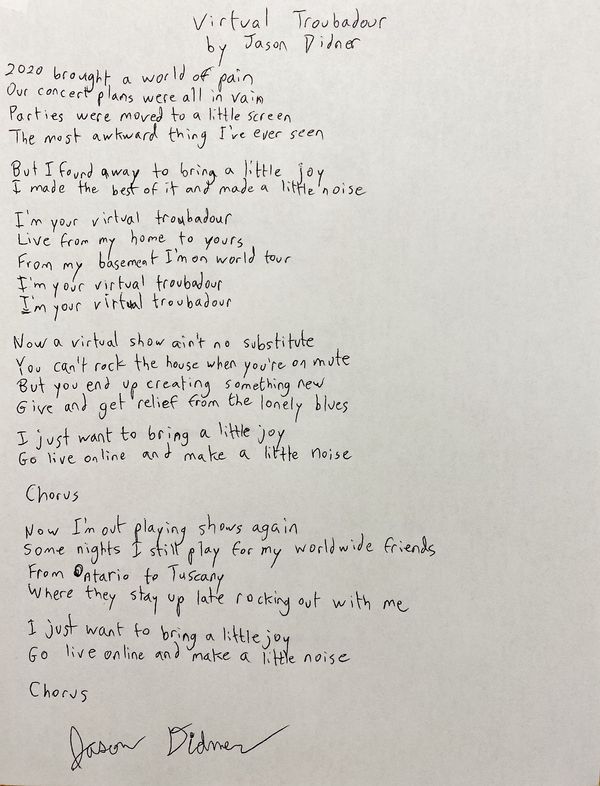 Virtual Troubadour
by Jason Didner
2020 brought a world of pain
Our concert plans were all in vain
Parties were moved to a little screen
The most awkward thing I've ever seen
But I found away to bring a little joy
I made the best of it and made a little noise
I'm your virtual troubadour
Live from my home to yours
From my basement I'm on world tour
I'm your virtual troubadour
I'm your virtual troubadour
Now a virtual show ain't no substitute
You can't rock the house when you're on mute
But you end up creating something new
Give and get relief from the lonely blues
I just want to bring a little joy
Go live online and make a little noise
Chorus
Now I'm out playing shows again
Some nights I still play for my worldwide friends
From Ontario to Tuscany
Where they stay up late rocking out with me
I just want to bring a little joy
Go live online and make a little noise
Chorus
Jason Didner